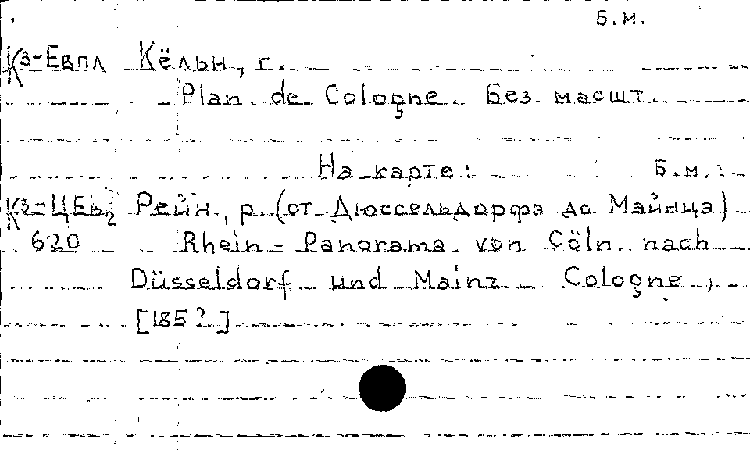 Б.м.
Кз-Евпл Кёльн, г.
Plan de Cologne. Без масшт.
На карте: Б.м.
Кз-ЦЕв2 Рейн, р. (от Дюссельдорфа до Майнца)
620 Rhein-Panorama von Cöln nach
Düsseldorf und Mainz. Cologne,
[185?]